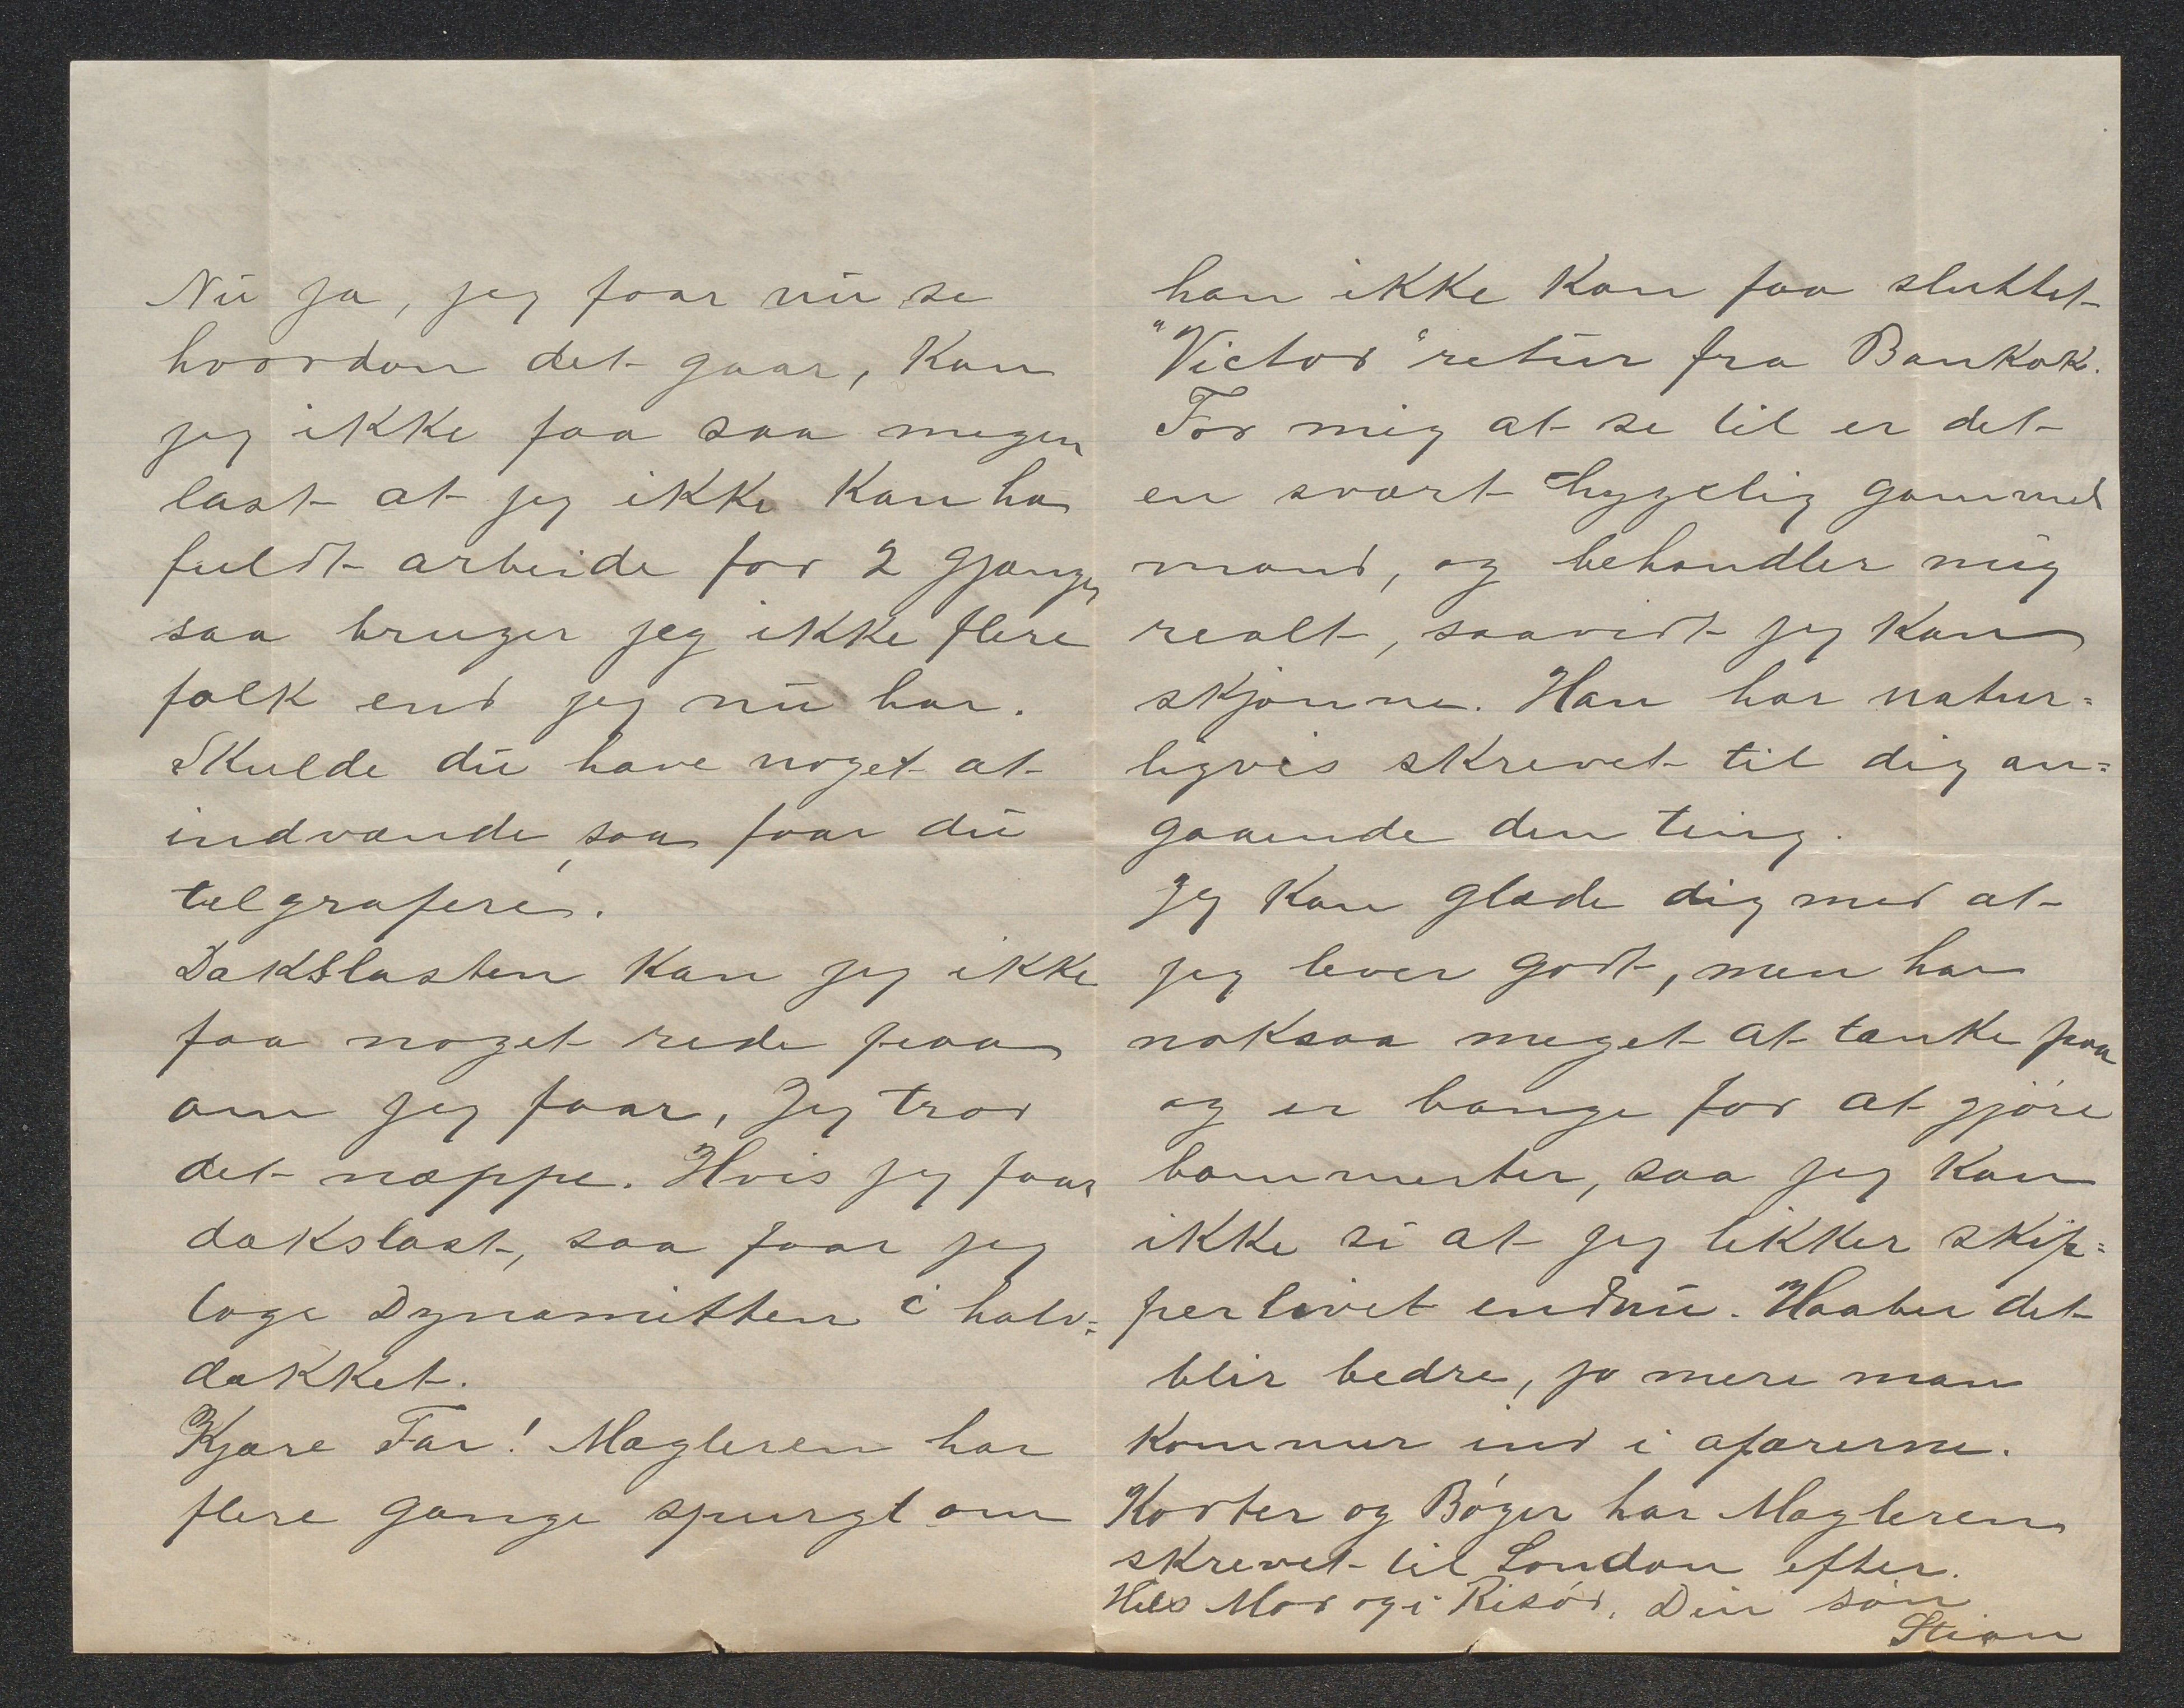 Nu ja, jeg faar nu se
hvordan det gaar, Kan
jeg ikke faa saa megen
last at jeg ikke Kan ha
fuldt arbeide for 2 gjænger
saa bruger jeg ikke flere
folk end jeg nu har.
Skulde du have noget at
indvænde, saa faar du
telgrafere.
Dækslasten Kan jeg ikke
faa noget rede paa
om jeg faar, Jeg tror
det næppe. Hvis jeg faar
dækslast, saa faar jeg
tage Dynamitten i halv=
dækket.
Kjære Far! Mægleren har
flere gange spurgt om
han ikke Kan faa sluttet
"Victor" retur fra Bankok.
For mig at se til er det
en svært hyggelig gammel
mand, og behandler mig
realt, saavidt jeg Kan
skjønne. Han har natur=
ligvis skrevet til dig an=
gaaende den ting.
Jeg Kan glæde dig med at
jeg lever godt, men har
noksaa meget at tænke paa
og er bange for at gjøre
bommerter, saa jeg Kan
ikke si at jeg likker skip=
perlivet endnu. Haaber det
blir bedre, jo mere man
Kommer ind i afærerne.
Korter og Bøger har Mægleren
skrevet til London efter.
Hils Mor og i Risør. Din søn
Stian